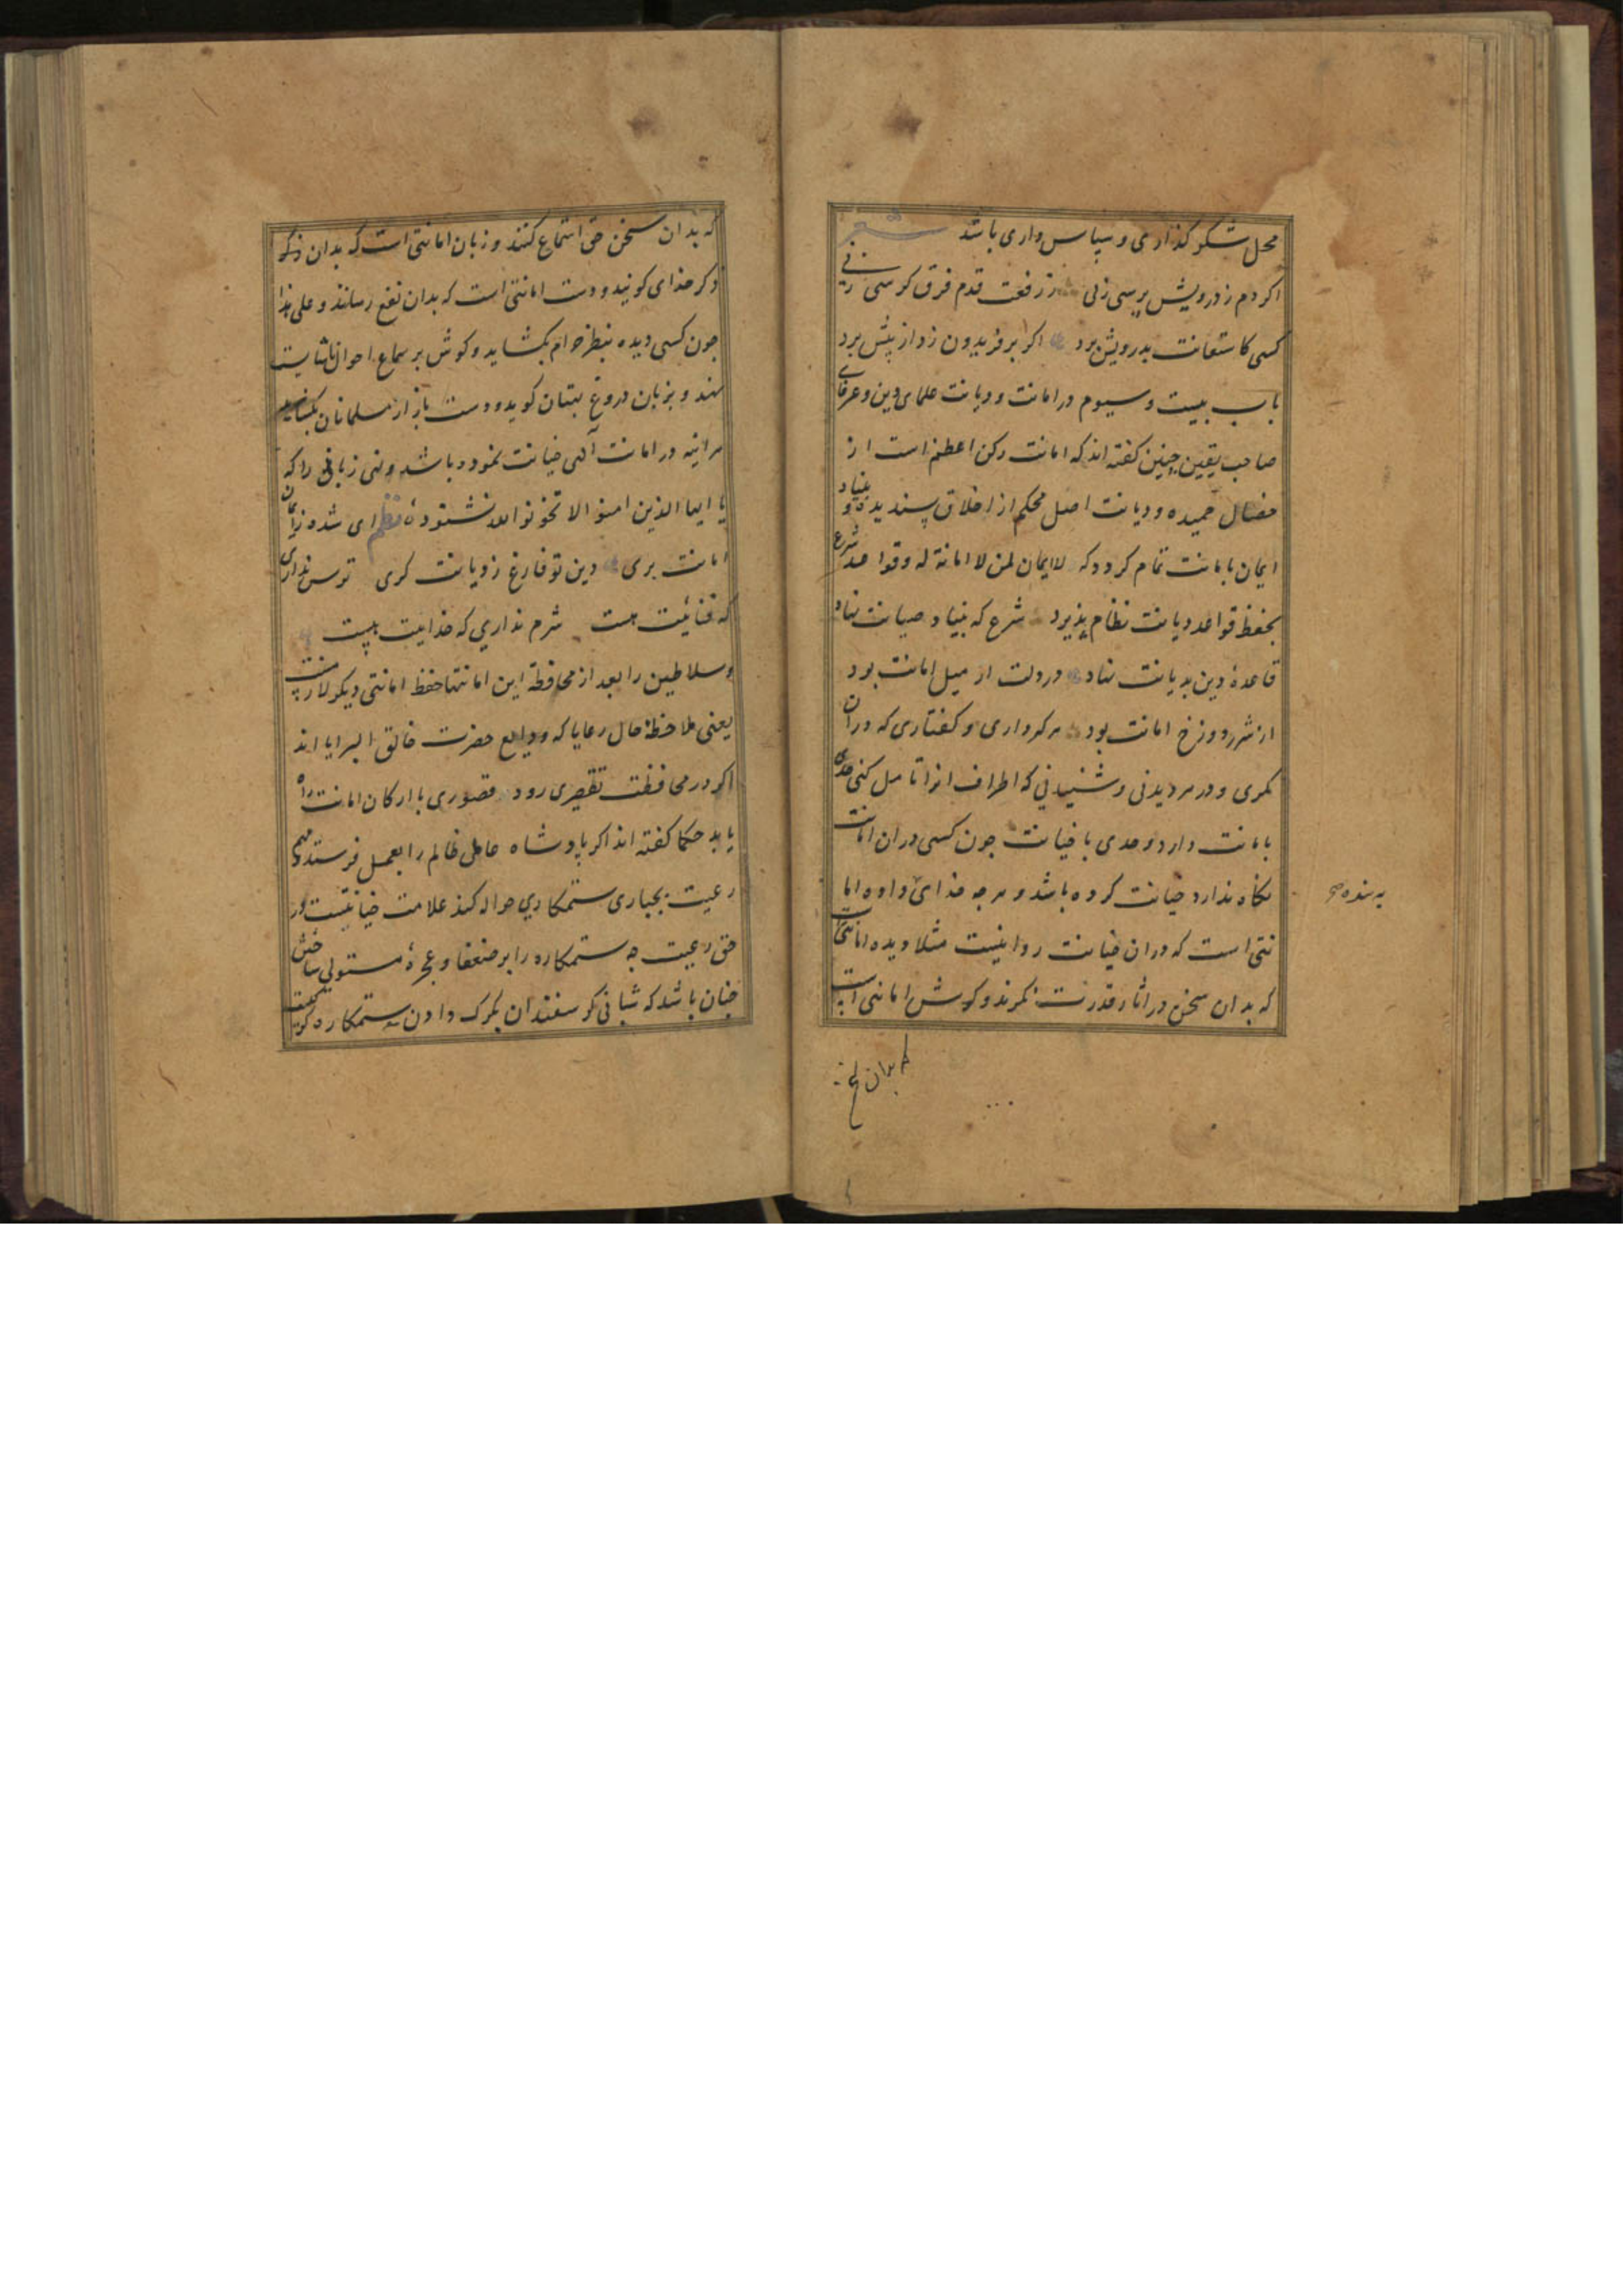 محل شکر گذاری و سپاس داری باشد شعر
اکر دم ز درویش پرسی زنی ز رفعت قدم فرق کرسی زنی
کسی کاستعانت بدرویش برد اکر بر فریدون زد از پیش برد
باب بیست و سیوم در امانت و دیانت علمای دین و عرفای
صاحب یقین چنین کفته اند که امانت رکن اعظم است از
خصال حمیده و دیانت اصل محکم از اخلاق پسندیده و بنیاد
ایمان بامانت تمام کردد که لا ایمان لمن لا امانة له و قواعد شرع
بحفظ قواعد دیانت نظام پذیرد شرع که بنیاد صیانت نهاد
قاعدۀ دین بدیانت نهاد درولت از میل امانت بود
از شرر دوزخ امانت بود هر کرداری و کفتاری که در ان
نکری و در هر دیدنی و شنیدنی که اطراف انرا تامل کنی حدی
بامانت دارد و حدی با خیانت جون کسی دران امانت
نکاه ندارد خیانت کرده باشد و هر جه خدای داده اما
به بنده صح
نتی است که دران خیانت روا نیست مثلا دیده امانتی
که بدان سخن در اثار قدرت نکرند و کوش امانتی است
که بدان سخن
که بدان سخن حق استماع کنند و زبان امانتی است که بدان ذکر
ذکر خدای کویند و دست امانتی است که بدان نفع رسانند و علی هذا
جون کسی دیده بنظر حرام بکشاید و کوش بر سماع احوال ناشایست
نهد و بزبان دروغ بهتان کوید و دست بازار مسلمانان بکشاید
هر اینه در امانت آلهی خیانت نموده باشد و نهی ربانی را که
یا ایها الذین امنوا لا تخونوا الله نشنوده نظم ای شده ز ایمان
امانت بری دین تو فارغ ز دیانت کری ترس نداری
که فنائیت هست شرم نداری که خدائیت هست
و سلاطین را بعد از محافظة این امانتها حفظ امانتی دیکر لازمست
یعنی ملاحظۀ حال رعایا که ودایع حضرت خالق البرایا اند
اکر در محافظت تقصیری رود قصوری بارکان امانت راه
یابد حکما کفته اند اکر پادشاه عامل ظالم را بعمل فرستد و مهم
رعیت بجباری ستمکاری حواله کند علامت خیانتیست در
حق رعیت جه ستمکاره را بر ضعفا و عجزۀ مستولی ساختن
جنان باشد که شبانی کوسفندان بکرک دادن ستمکاره